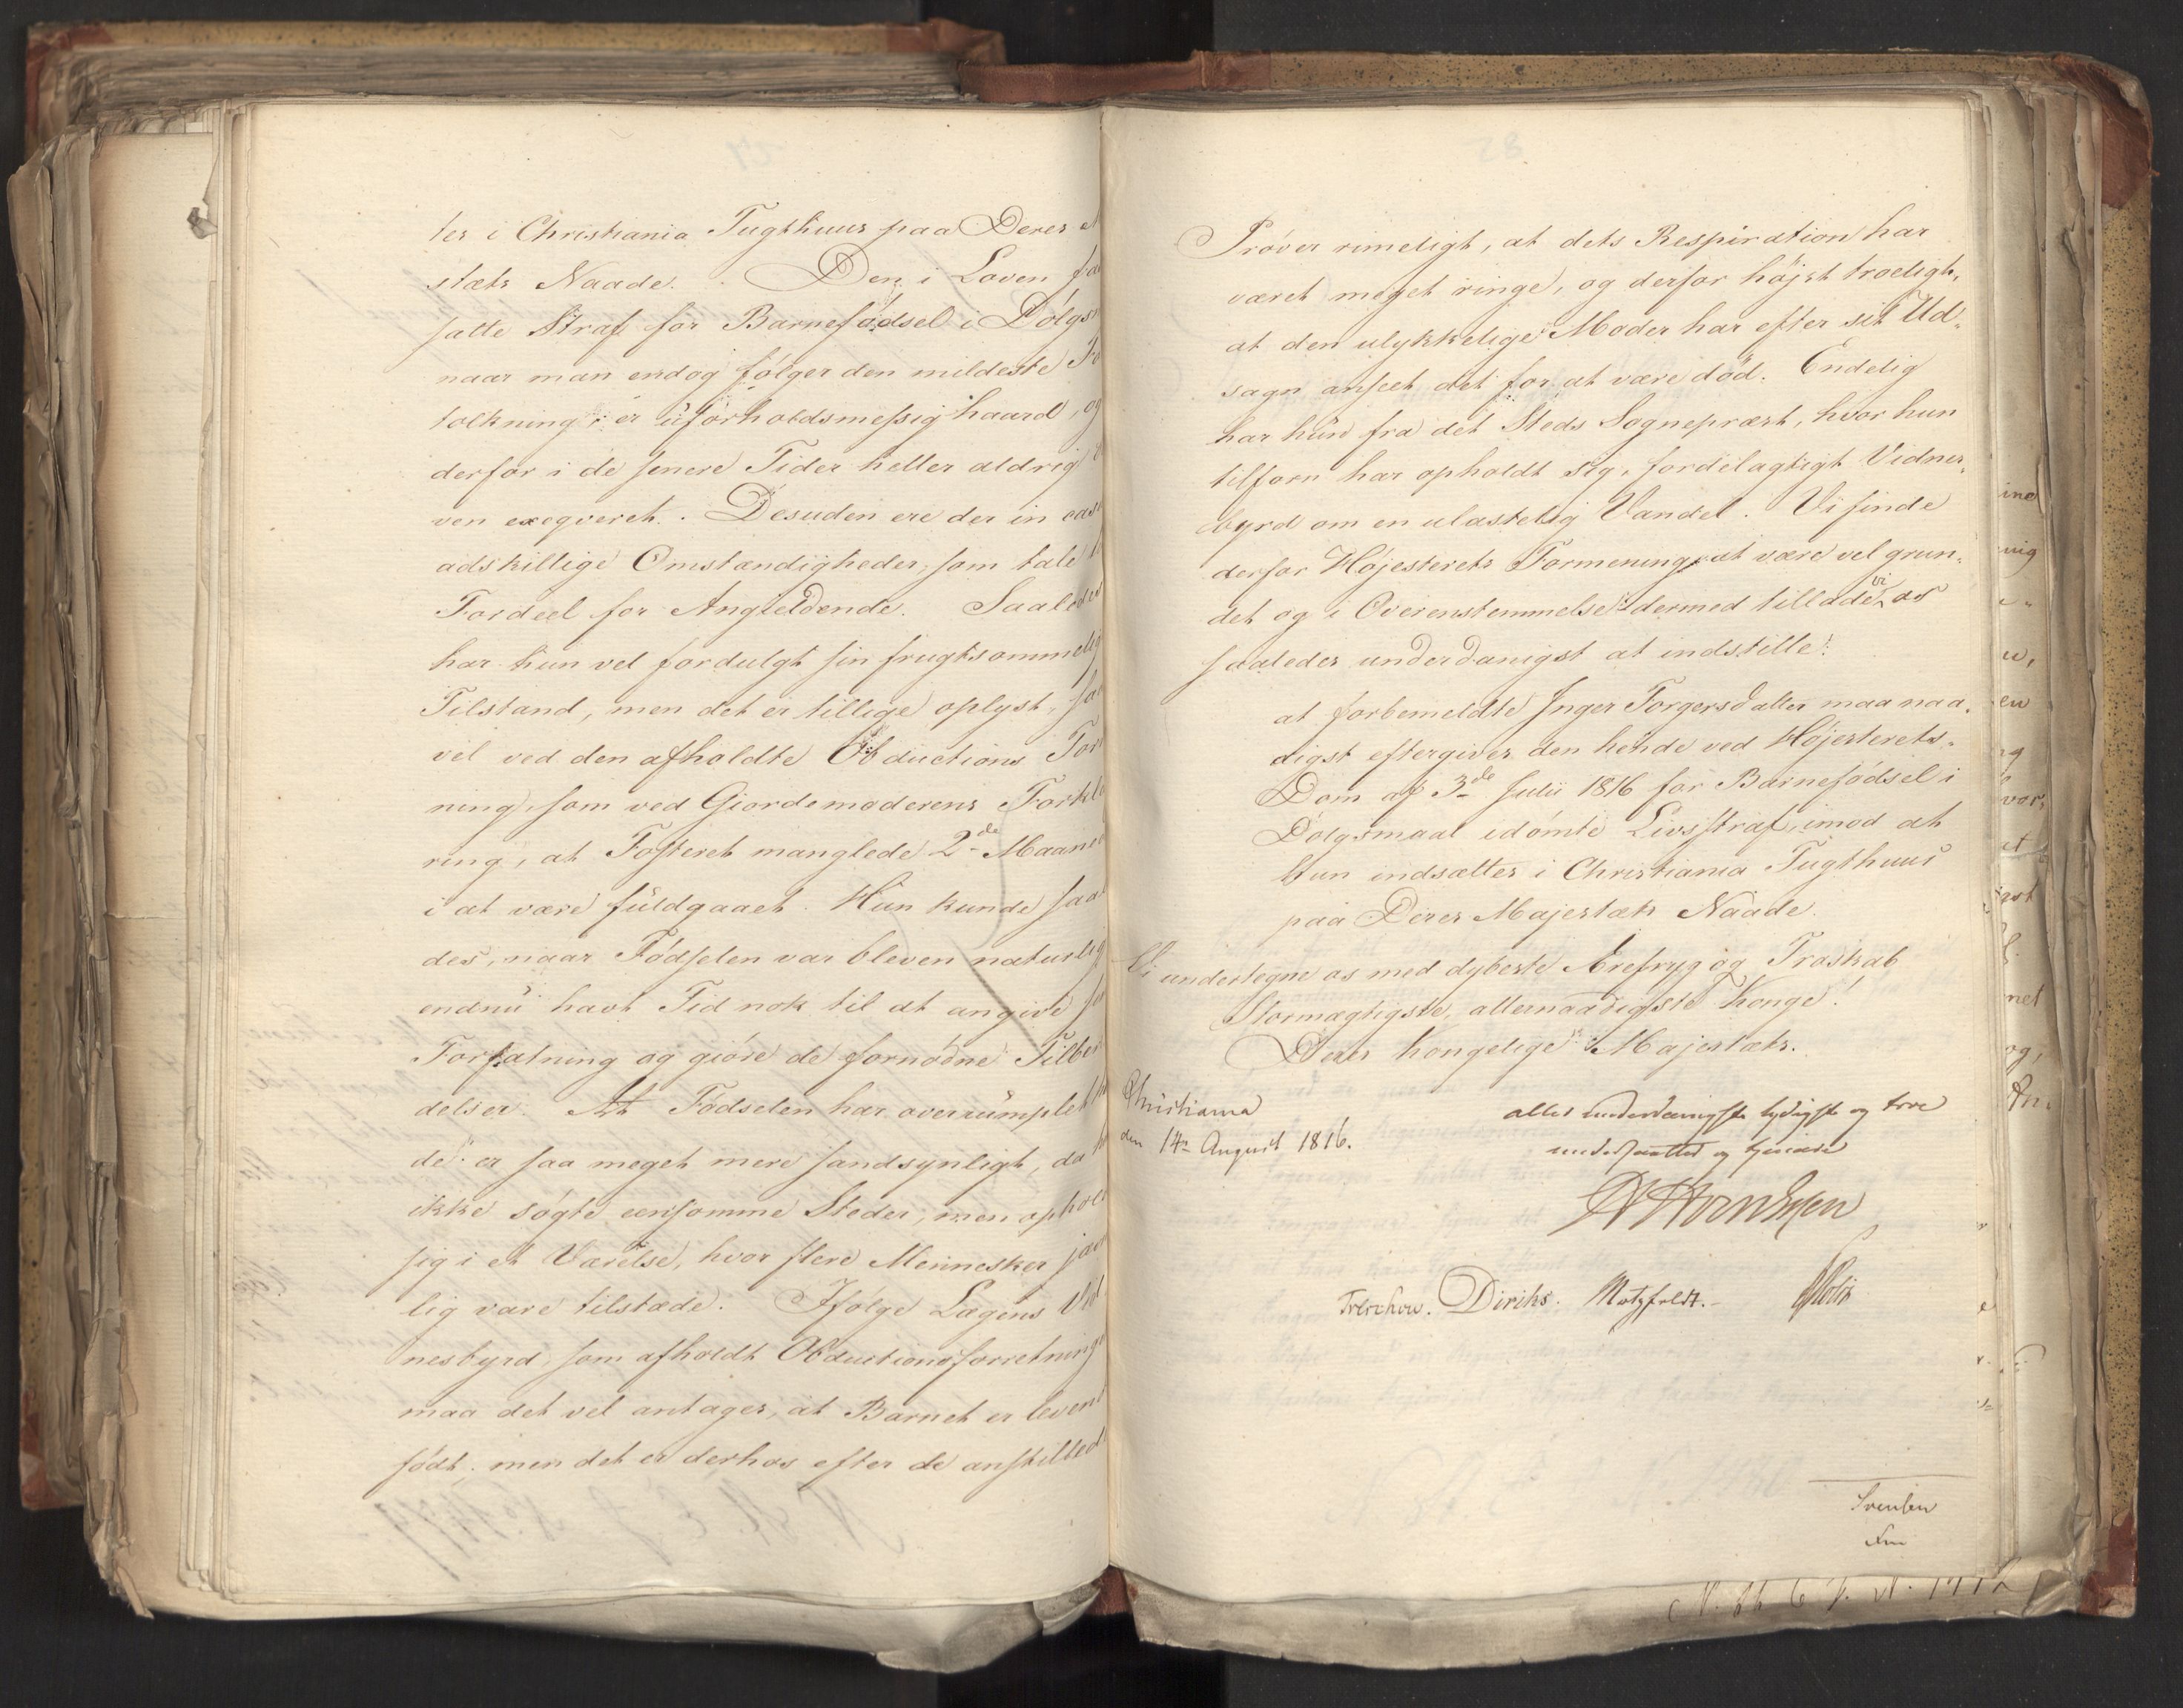 tes i Christiania Tugthuus paa Deres
stæts Naade. Den i Loven
satte Straf for Barnefødsel i Dølgs
naar man endog følger den mildeste
tolkning, er uforholdsmessig haard, og
derfor i de senere Tider heller aldrig
ven exeqveret. Desuden ere der in cas
adskillige Omstændigheder, som tale
Fordeel for Angieldende. Saaledes
har hun vel fordulgt sin frugtsommelig
Tilstand, men det er tillige oplyst, saa
vel ved den afholdte Obductions Forr
ning, som ved Giordemoderens Forkla
ring, at Fosteret manglede 2de Maaned
i at være fuldgaaet. Hun kunde saal
des, naar Fødselen var bleven naturlig
endnu havt Tid nok til at angive sin
Forfatning og giøre de fornødne Tilber
delser. At Fødselen har overrumplet
de er saa meget mere sandsynligt, da
ikke søgte eensomme Steder, men ophol
sig i et Værelse, hvor flere Mennesker jæv
lig vare tilstæde. Ifølge Lægens Vid
nesbyrd, som afholdt Obductionsforretning
maa det vel antages, at Barnet er levend
født, men det er derhos efter de anstilled
28
Prøver rimeligt, at dets Respiration har
været meget ringe, og derfor højst troeligt,
at den ulykkelige Moder har efter sit Ud-
sagn anseet det for at være død. Endelig
har hun fra det Steds Sognepræst, hvor hun
tilforn har opholdt sig, fordelagtigt Vidnes-
byrd om en ulastelig Vandel. Vi finde
derfor Højesterets Formening at være vel grun-
det og i Overenstemmelse dermed tillade vi os
saaledes underdanigst at indstille:
at forbemeldte Inger Torgersdatter maa naa-
digst eftergives den hende ved Højesterets-
Dom af 3de Julii 1816 for Barnefødsel i
Dølgsmaal idømte Livsstraf, imod at
hun indsættes i Christiania Tugthuus
paa Deres Majestæts Naade.
Vi undertegne os med dybeste Ærefrygt og Troskab
Stormægtigste, allernaadigste Konge!
Deres Kongelige Majestæts.
Christiania
den 14de August 1816.
allerunderdanigste lydigste og troe
undersaatter og tjenere
Treschow. Diriks. Motzfeldt.